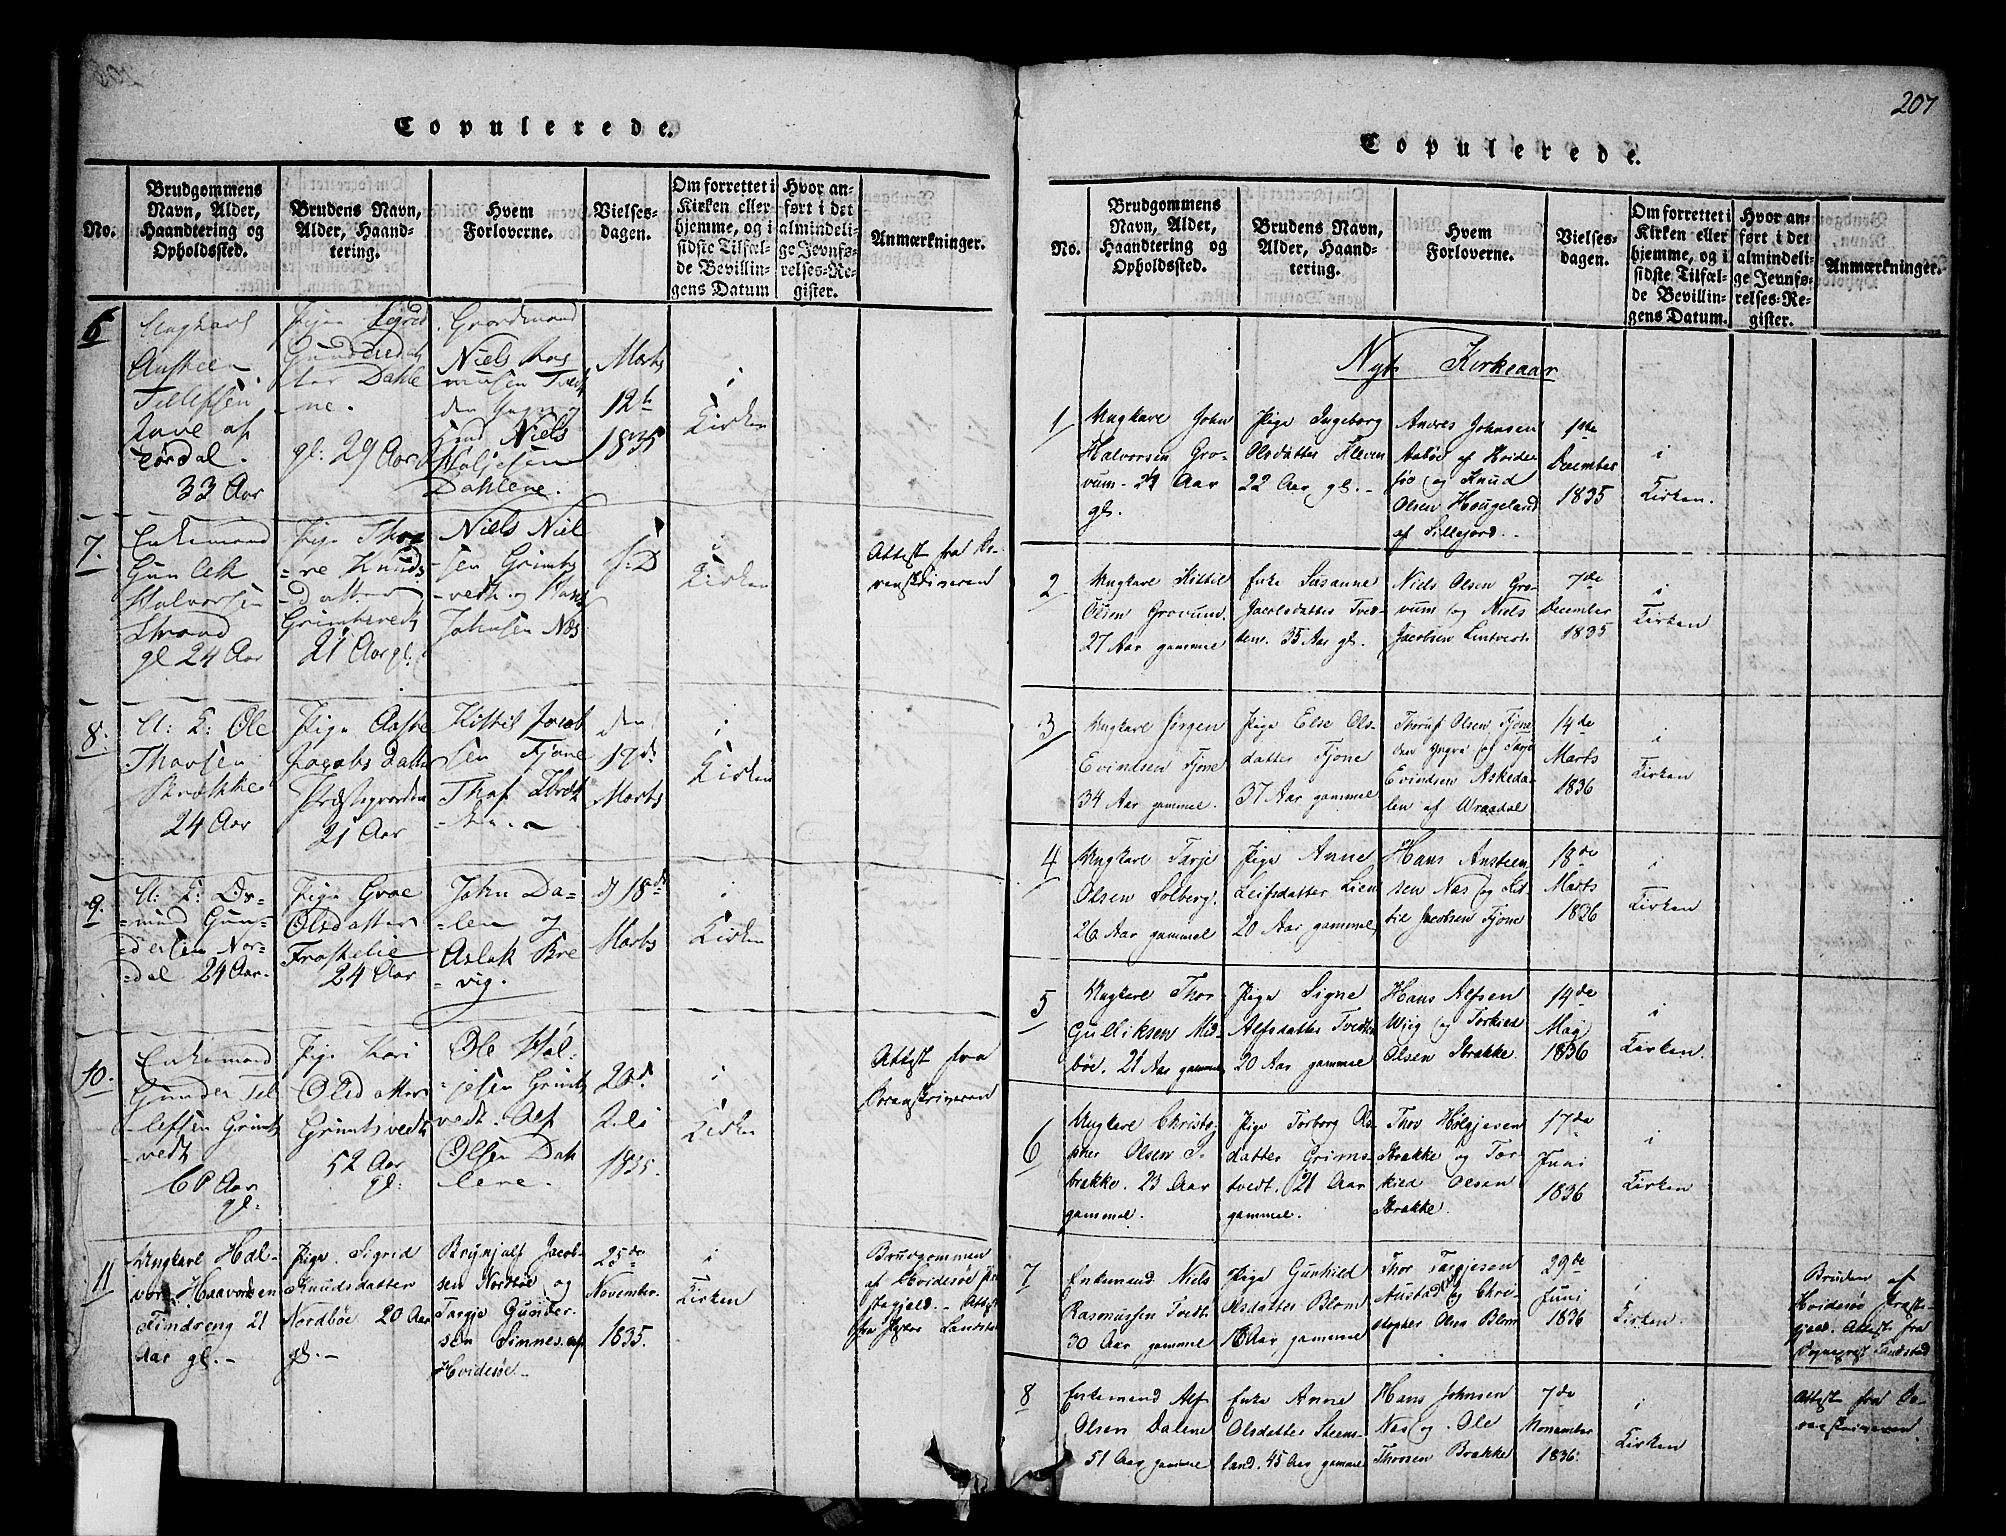 Copulerede.
No.
Brudgommens
Navn, Alder,
Haandtering og
Opholdssted.
Brudens Navn,
Alder, Haand-
tering.
Hvem
Forloverne.
Vielses-
dagen.
Om forrettet i
Kirken eller
hjemme, og i
sidste Tilfæl-
de Bevillin-
gens Datum
Hvor an-
ført i det
almindeli-
ge Jevnfø-
relses-Re-
gister.
Anmærkninger.
6
Ungkarl
Ansteen
Tellefsen
af
Tørdal.
33 Aar
Pige Sigrid
Gundersdat
ter Dahle
ne.
gl: 29 Aar
Gaardmand
Niels Ras
musen Tvedt
den Yngre og
Niels
Dahlene.
Marts
12te
1835
i
Kirken
7.
Enkemand
Gunlek
Halvorsen
Strand
gl 24 Aar
Pige Tho
re Knuds
datter
Grimsvedt
21 Aar gl:
Niels Niel
sen Grimts
vedt og Hans
Johnsen Næs
s:D
i
Kirken
Attest fra So-
renskriveren
8.
U: K: Ole
Thorsen
Brække
24 Aar
Pige Aaste
Jacobs Datter
Præstegaarden
21 Aar
Kittil Jacob
sen Fjone
den
19de
Marts
i
Kirken
9.
U: K: Os-
mund Gun-
dersen Nor-
dal 24 Aar.
Pige Groe
Olsdatter
Froskelie
24 Aar
John Da-
len og
Aslak Bre
vig.
d 18de
Marts
i
Kirken
10.
Enkemand
Gunder Tel
lefsen Grimts
vedt
60 Aar
gl:
Pige Kari
Olsdatter
Grimtsvedt
52 Aar
gl:
Ole Høl-
jesen Grimts
vedt. Alf
Olsen Dah
lene.
1835.
i
Kirken
Attest fra
Sorenskriveren
11
Ungkarl Hal-
vor Haavorsen
Tindreng 21
Aar gl.
Pige Sigrid
Knudsdatter
Nordbøe 20 Aar
gl.
Brynjulf Jacob-
sen Nordbøe og
Tarje Gunder-
sen Simnes af
Hvidesøe
25de
November
1835.
i
Kirken
Brudgommen
af Hvidesøe Præ
stegjeld. Attest
fra Landstad
207
Copulerede.
No.
Brudgommens
Navn, Alder,
Haandtering og
Opholdssted.
Brudens Navn,
Alder, Haand-
tering.
Hvem
Forloverne.
Vielses-
dagen.
Om forrettet i
Kirken eller
hjemme, og i
sidste Tilfæl-
de Bevillin-
gens Datum.
Hvor an-
ført i det
almindeli-
ge Jevnfø-
relses-Re-
gister.
Anmærkninger.
Nyt Kirkeaar
1
Ungkarl John
Halvorsen Gro-
vum. 24 Aar
gl.
Pige Ingeborg
Olsdatter Kleven
22 Aar gl.
Anders Johnsen
Aabøe af Hvide
søe og Knud
Olsen Hougeland
af Sillejord.
1ste
December
1835
i
Kirken.
2
Ungkarl Kittil
Olsen Grovum.
27 Aar gammel
Enke Susanne
Jacobsdatter Tved-
tene. 35 Aar gl.
Niels Olsen Gro-
vum og Niels
Jacobsen Lintvedt
7de
December
1835
i
Kirken
3
Ungkarl Jørgen
Evindsen Fjone
34 Aar gammel.
Pige Else Ols-
datter Fjone
37 Aar gammel
Olsen Fjone
den Yngre og Tarje
Evindsen Askeda-
len af Wraadal
14de
Marts
1836
i
Kirken
4
Ungkarl Tarje
Olsen Solberg.
26 Aar gammel
Pige Anne
Leifsdatter Lien
20 Aar gammel
Hans Ansteen
sen Næs og Kit
til Jacobsen Fjone
18de
Marts
1836
i
Kirken
5
Ungkarl Thor
Gulliksen Mid-
bøe. 21 Aar gammel
Pige Signe
Alfsdatter Tvedten
20 Aar gammel
Hans Alfsen
Wiig og Torkield
Olsen Brakke
14de
Maj
1836
i
Kirken.
6
Ungkarl Christo-
pher Olsen
brakke. 23 Aar
gammel.
Pige Torborg Ols-
datter Grims-
tvedt. 21 Aar
gammel.
Thor Hølgjesen
Brakke og Tor
kield Olsen
Brakke.
17de
Juni
1836
i
Kirken
7
Enkemand Niels
Rasmussen Tvedt
30 Aar gammel
Pige Gunhild
Alsdatter Blom
Aar gammel
Thor Targjesen
Austad og Chri-
stopher Olsen Blom
29de
Juni
1836
i
Kirken.
Bruden af
Hvidesøe Præste-
gjeld. Attest fra
Sognepræst Landstad
8
Enkemand Alf
Olsen Dalene
51 Aar gammel
Enke Anne
Olsdatter Steens-
land. 45 Aar gammel
Hans Johnsen
Næs og Ole
Thorsen Brakke
7de
November
1836.
i
Kirken
Attest fra So-
renskriveren.